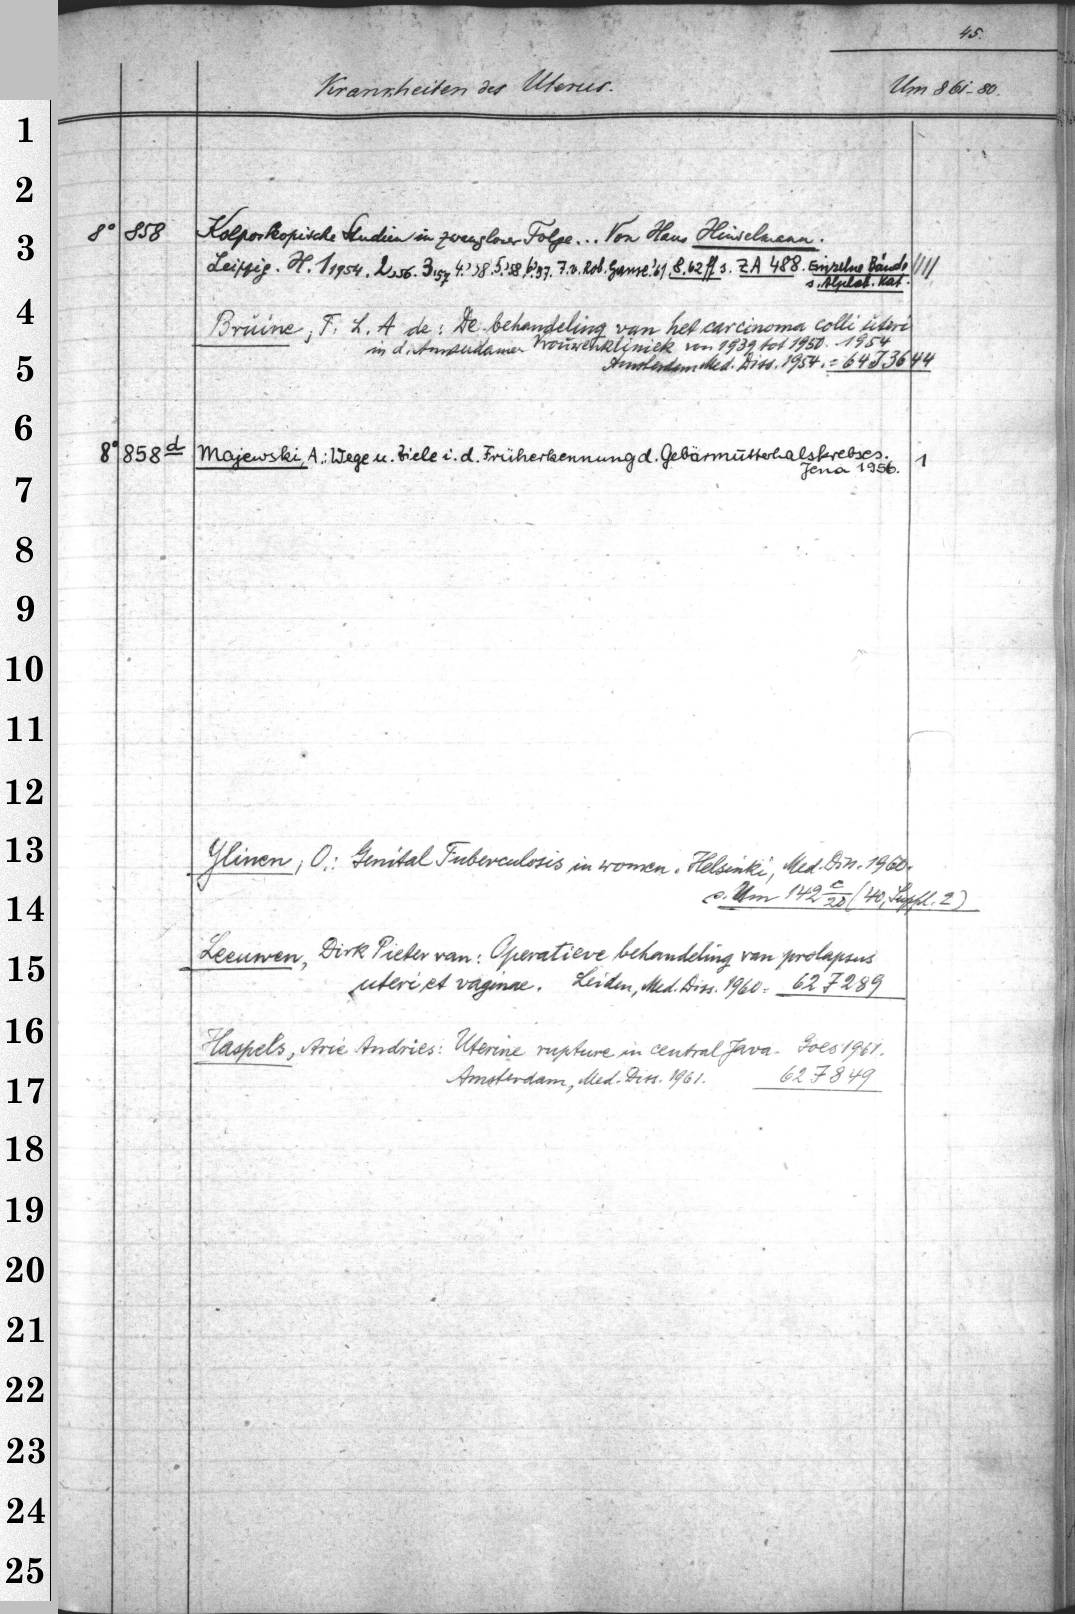 45.
Krankheiten des Uterus. Um 861-80.
1
2
3
8° 858 Kolposkopische Studien in zwangloser Folge... Von Hans Hinselmann.
Leipzig. H. 1 1954. 2,56. 3,57 4,'58 5,'58. 6,'59. 7.v. Rob. Ganse.'61 8.62 ff s. ZA 488. Einzelne Bände ////
s. Alphab. Kat.
4
Bruïne, F. L. A de: De behandeling van het carcinoma colli uteri
in d. Amsterdamer Vrouwenkliniek van 1939 tot 1950. 1954
5
Amsterdam Med. Diss. 1954. = 64 J 3644
6
8° 858 d Majewski, A.: Wege u. Ziele i. d. Früherkennung d. Gebärmutterhalskrebses. 1
Jena 1956.
7
8
9
10
11
12
13
Ylinen, O.: Genital Tuberculosis in women. Helsinki, Med. Diss. 1960.
s. Um 142 c/20 (40, Suppl. 2)
14
Leeuwen, Dirk Pieter van: Operatieve behandeling van prolapsus
15
uteri et vaginae. Leiden, Med. Diss. 1960. 62 7289
16
Haspels, Arie Andries: Uterine rupture in central Java. Goes 1961.
Amsterdam, Med. Diss. 1961. 62 7849
17
18
19
20
21
22
23
24
25